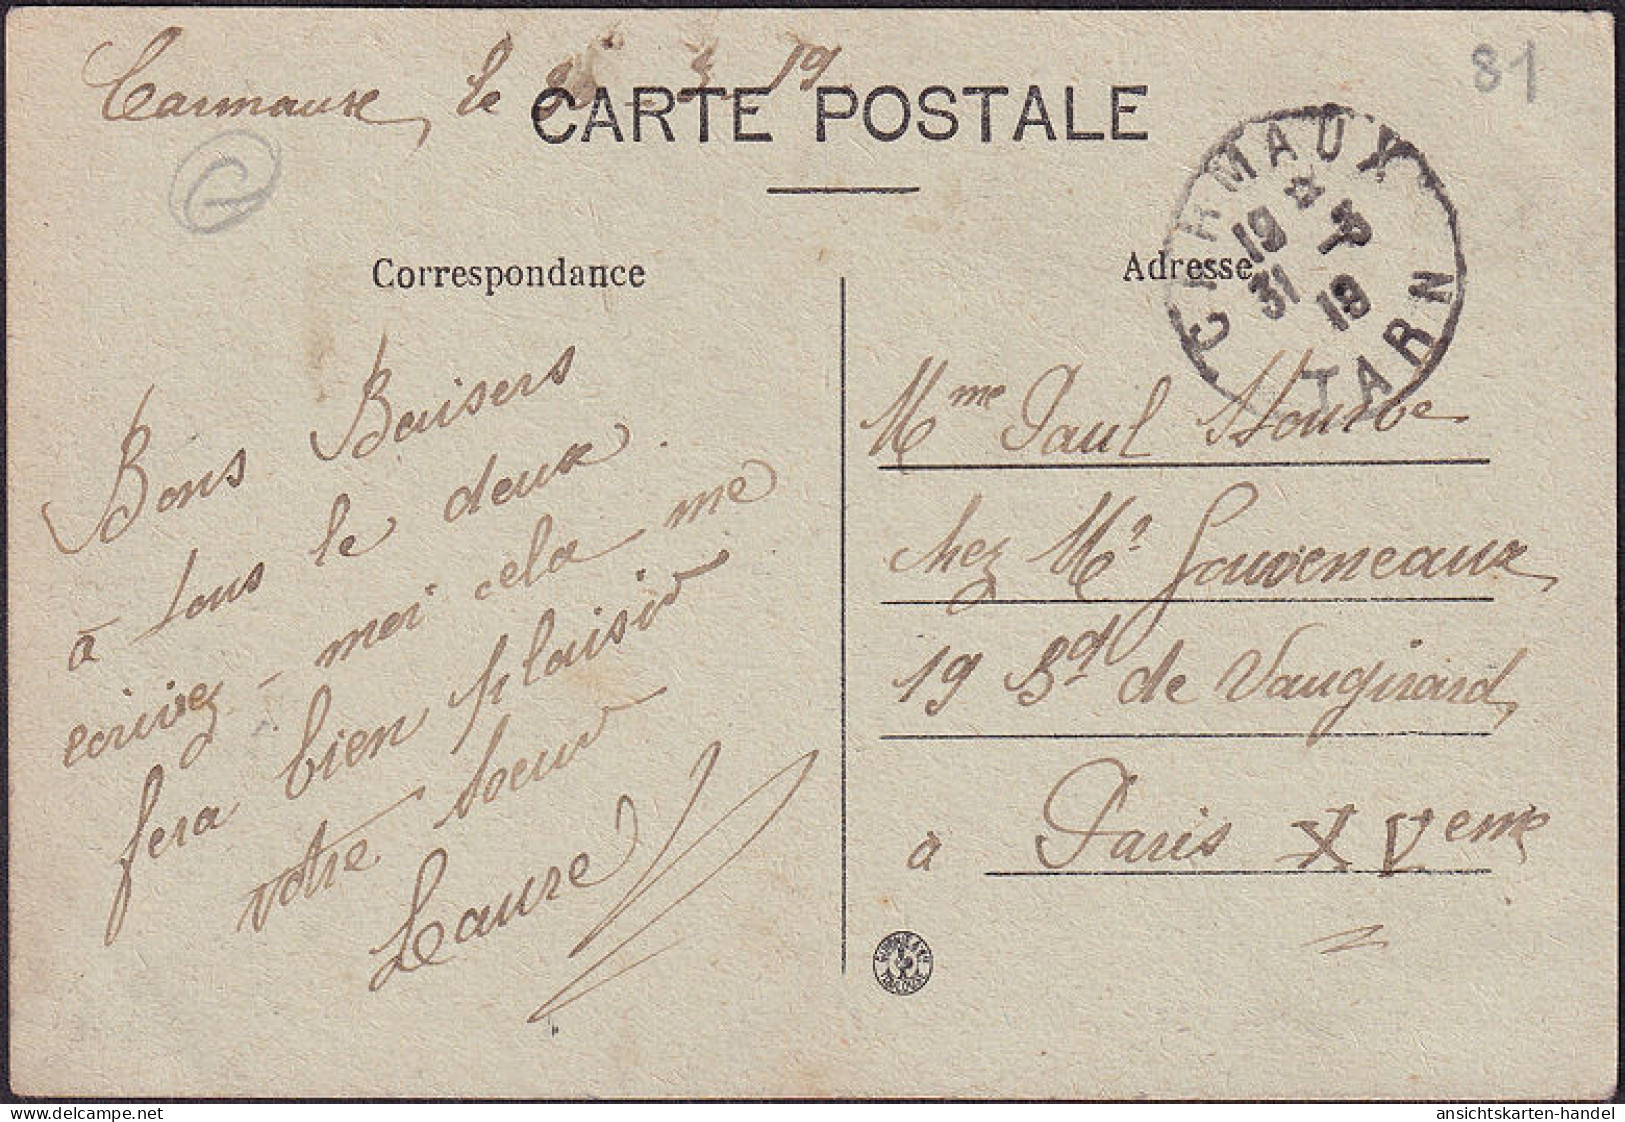 Carmaux, le 3 19
81
CARTE POSTALE
CARMAUX
19 * 3
31 19
TARN
Correspondance
Adresse
Bons Baisers
à tous le deux.
écrivez-moi cela me
fera bien plaisir
votre soeur
Laure
Mme Paul
chez Mr Gouveneaux,
19 Bd de Vaugirard,
à Paris XVeme
TOULOUSE
ansichtskarten-handel